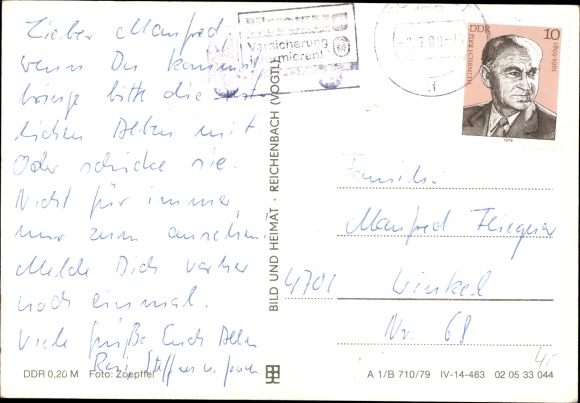 Lieber Manfred
wenn Du kommst
bringe bitte die
lichen Alben mit
Oder schicke sie.
Nicht für immer,
nur zum ansehen!
Melde Dich vorher
noch einmal.
Viele Grüße Euch Allen
Steffen u.
DDR 0,20 M Foto: Zoepffel
BILD UND HEIMAT · REICHENBACH (VOGTL
Versicherung
HEINRICH RAU
DDR
10
1899-1961
1979
Familie
Manfred
4701 Winkel
Nr. 68
A 1/B 710/79 IV-14-483 02 05 33 044